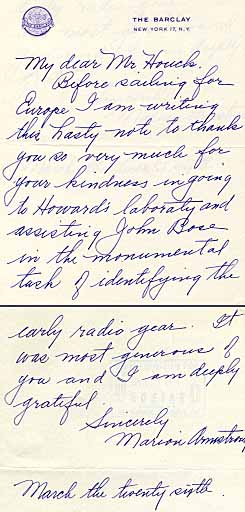 THE BARCLAY
NEW YORK 17, N.Y.
My dear Mr Houck.
Before sailing for
Europe I am writing
this hasty note to thank
you so very much for
your kindness in going
to Howard's laboraty and
assisting John Bose
in the monumental
task of identifying the
early radio gear. It
was most generous of
you and I am deeply
grateful.
Sincerely
Marion Armstrong
March the twenty sixth.